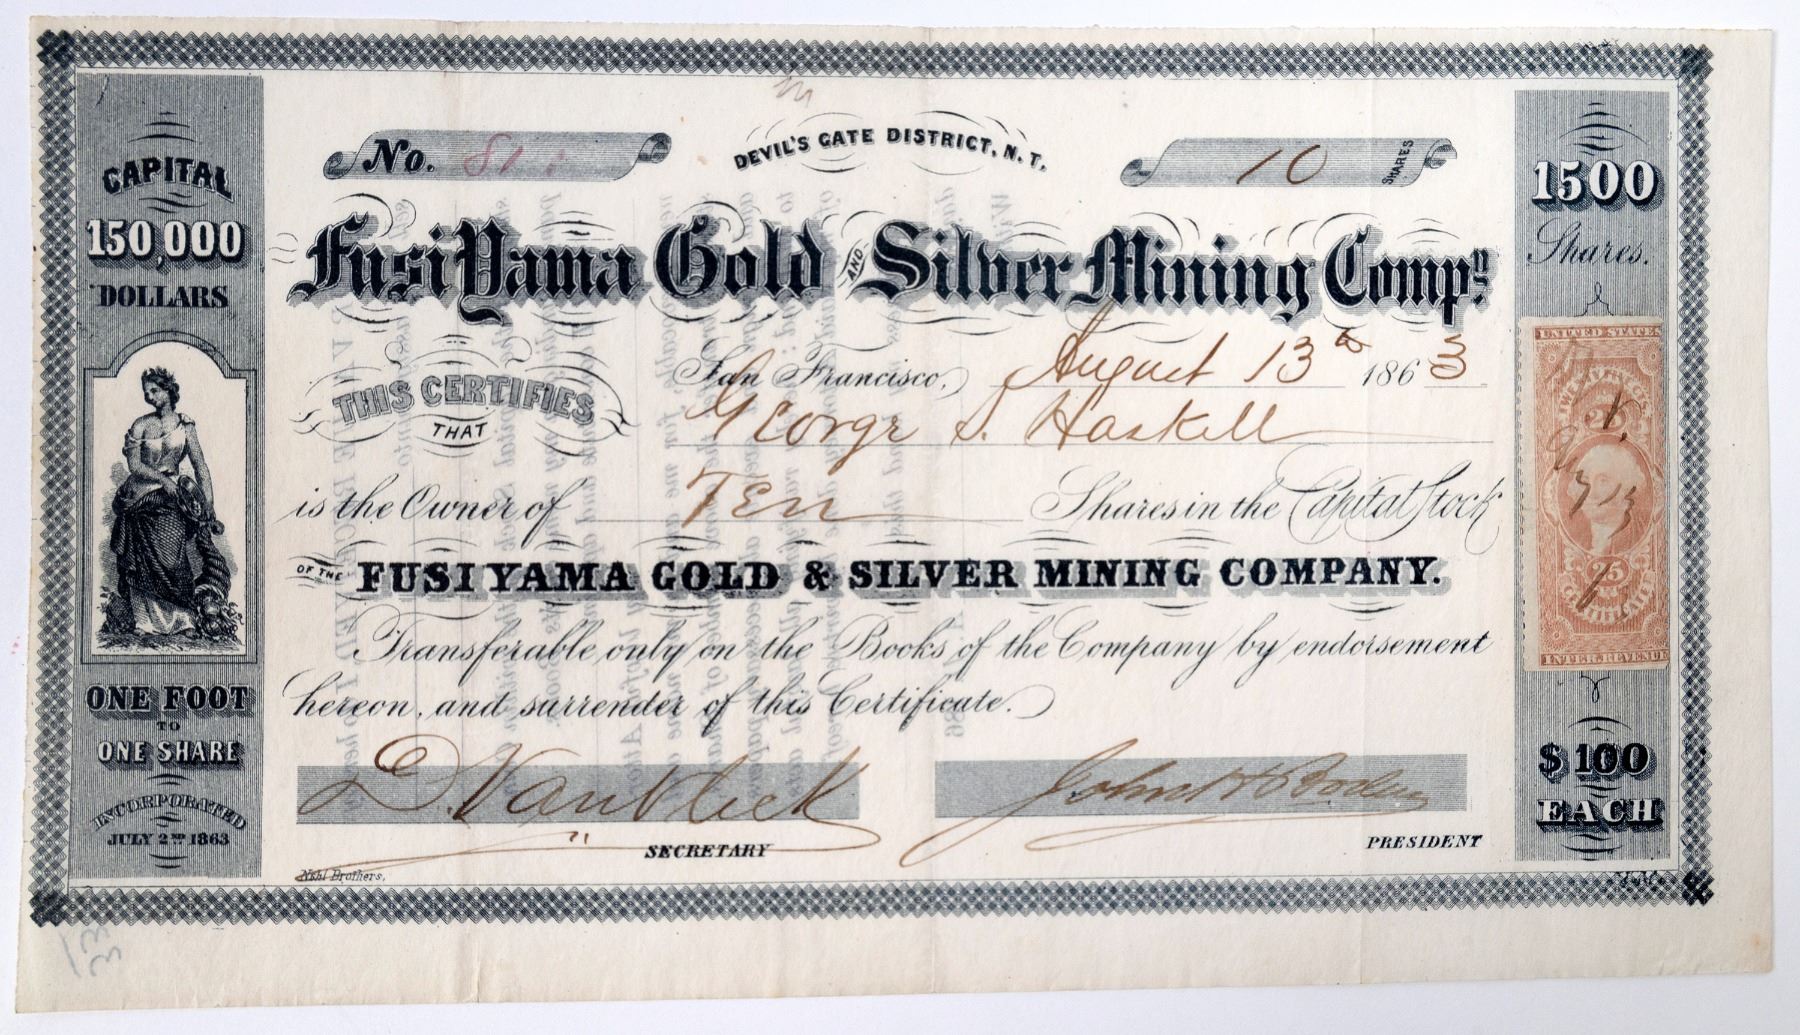 CAPITAL
150,000
DOLLARS
ONE FOOT
TO
ONE SHARE
INCORPORATED
JULY 2ND 1863
No. 81
DEVIL'S GATE DISTRICT, N. T.
10 SHARES
Fusi Yama Gold AND Silver Mining Compn.
San Francisco, August 13th 1863
THIS CERTIFIES
THAT
George S. Haskell
is the Owner of Ten Shares in the Capital Stock
OF THE FUSI YAMA GOLD & SILVER MINING COMPANY.
Transferable only on the Books of the Company by endorsement
hereon, and surrender of this Certificate.
John H
SECRETARY
PRESIDENT
Brothers,
1500
Shares.
UNITED STATES
25
25
CERTIFICATE
INTER. REVENUE
$100
EACH